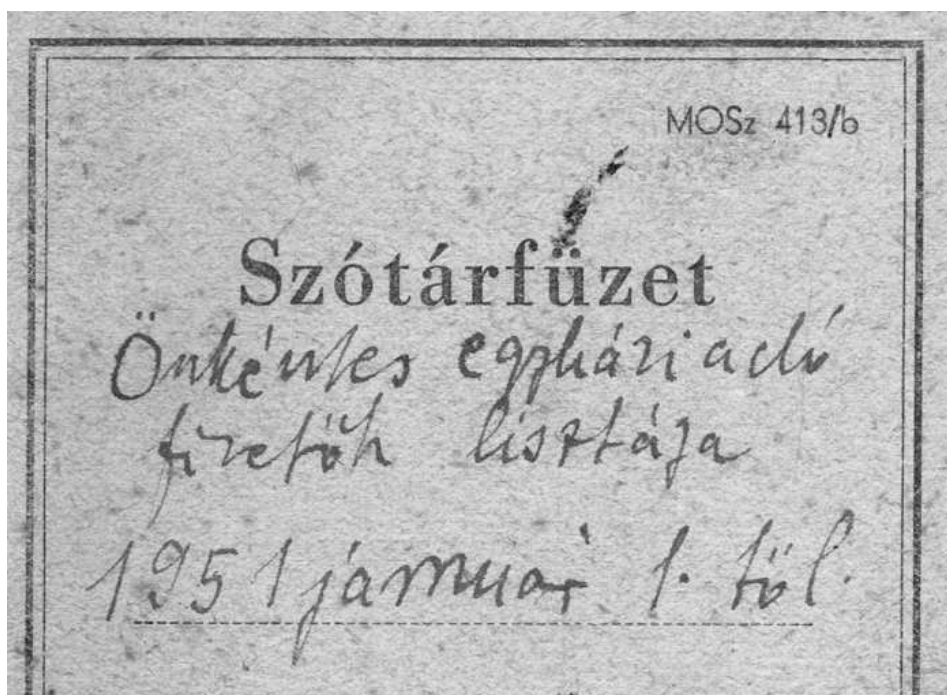 MOSz 413/b
Szótárfüzet
Önkéntes egyháziadó
fizetők lisztája
1951 január 1. től.